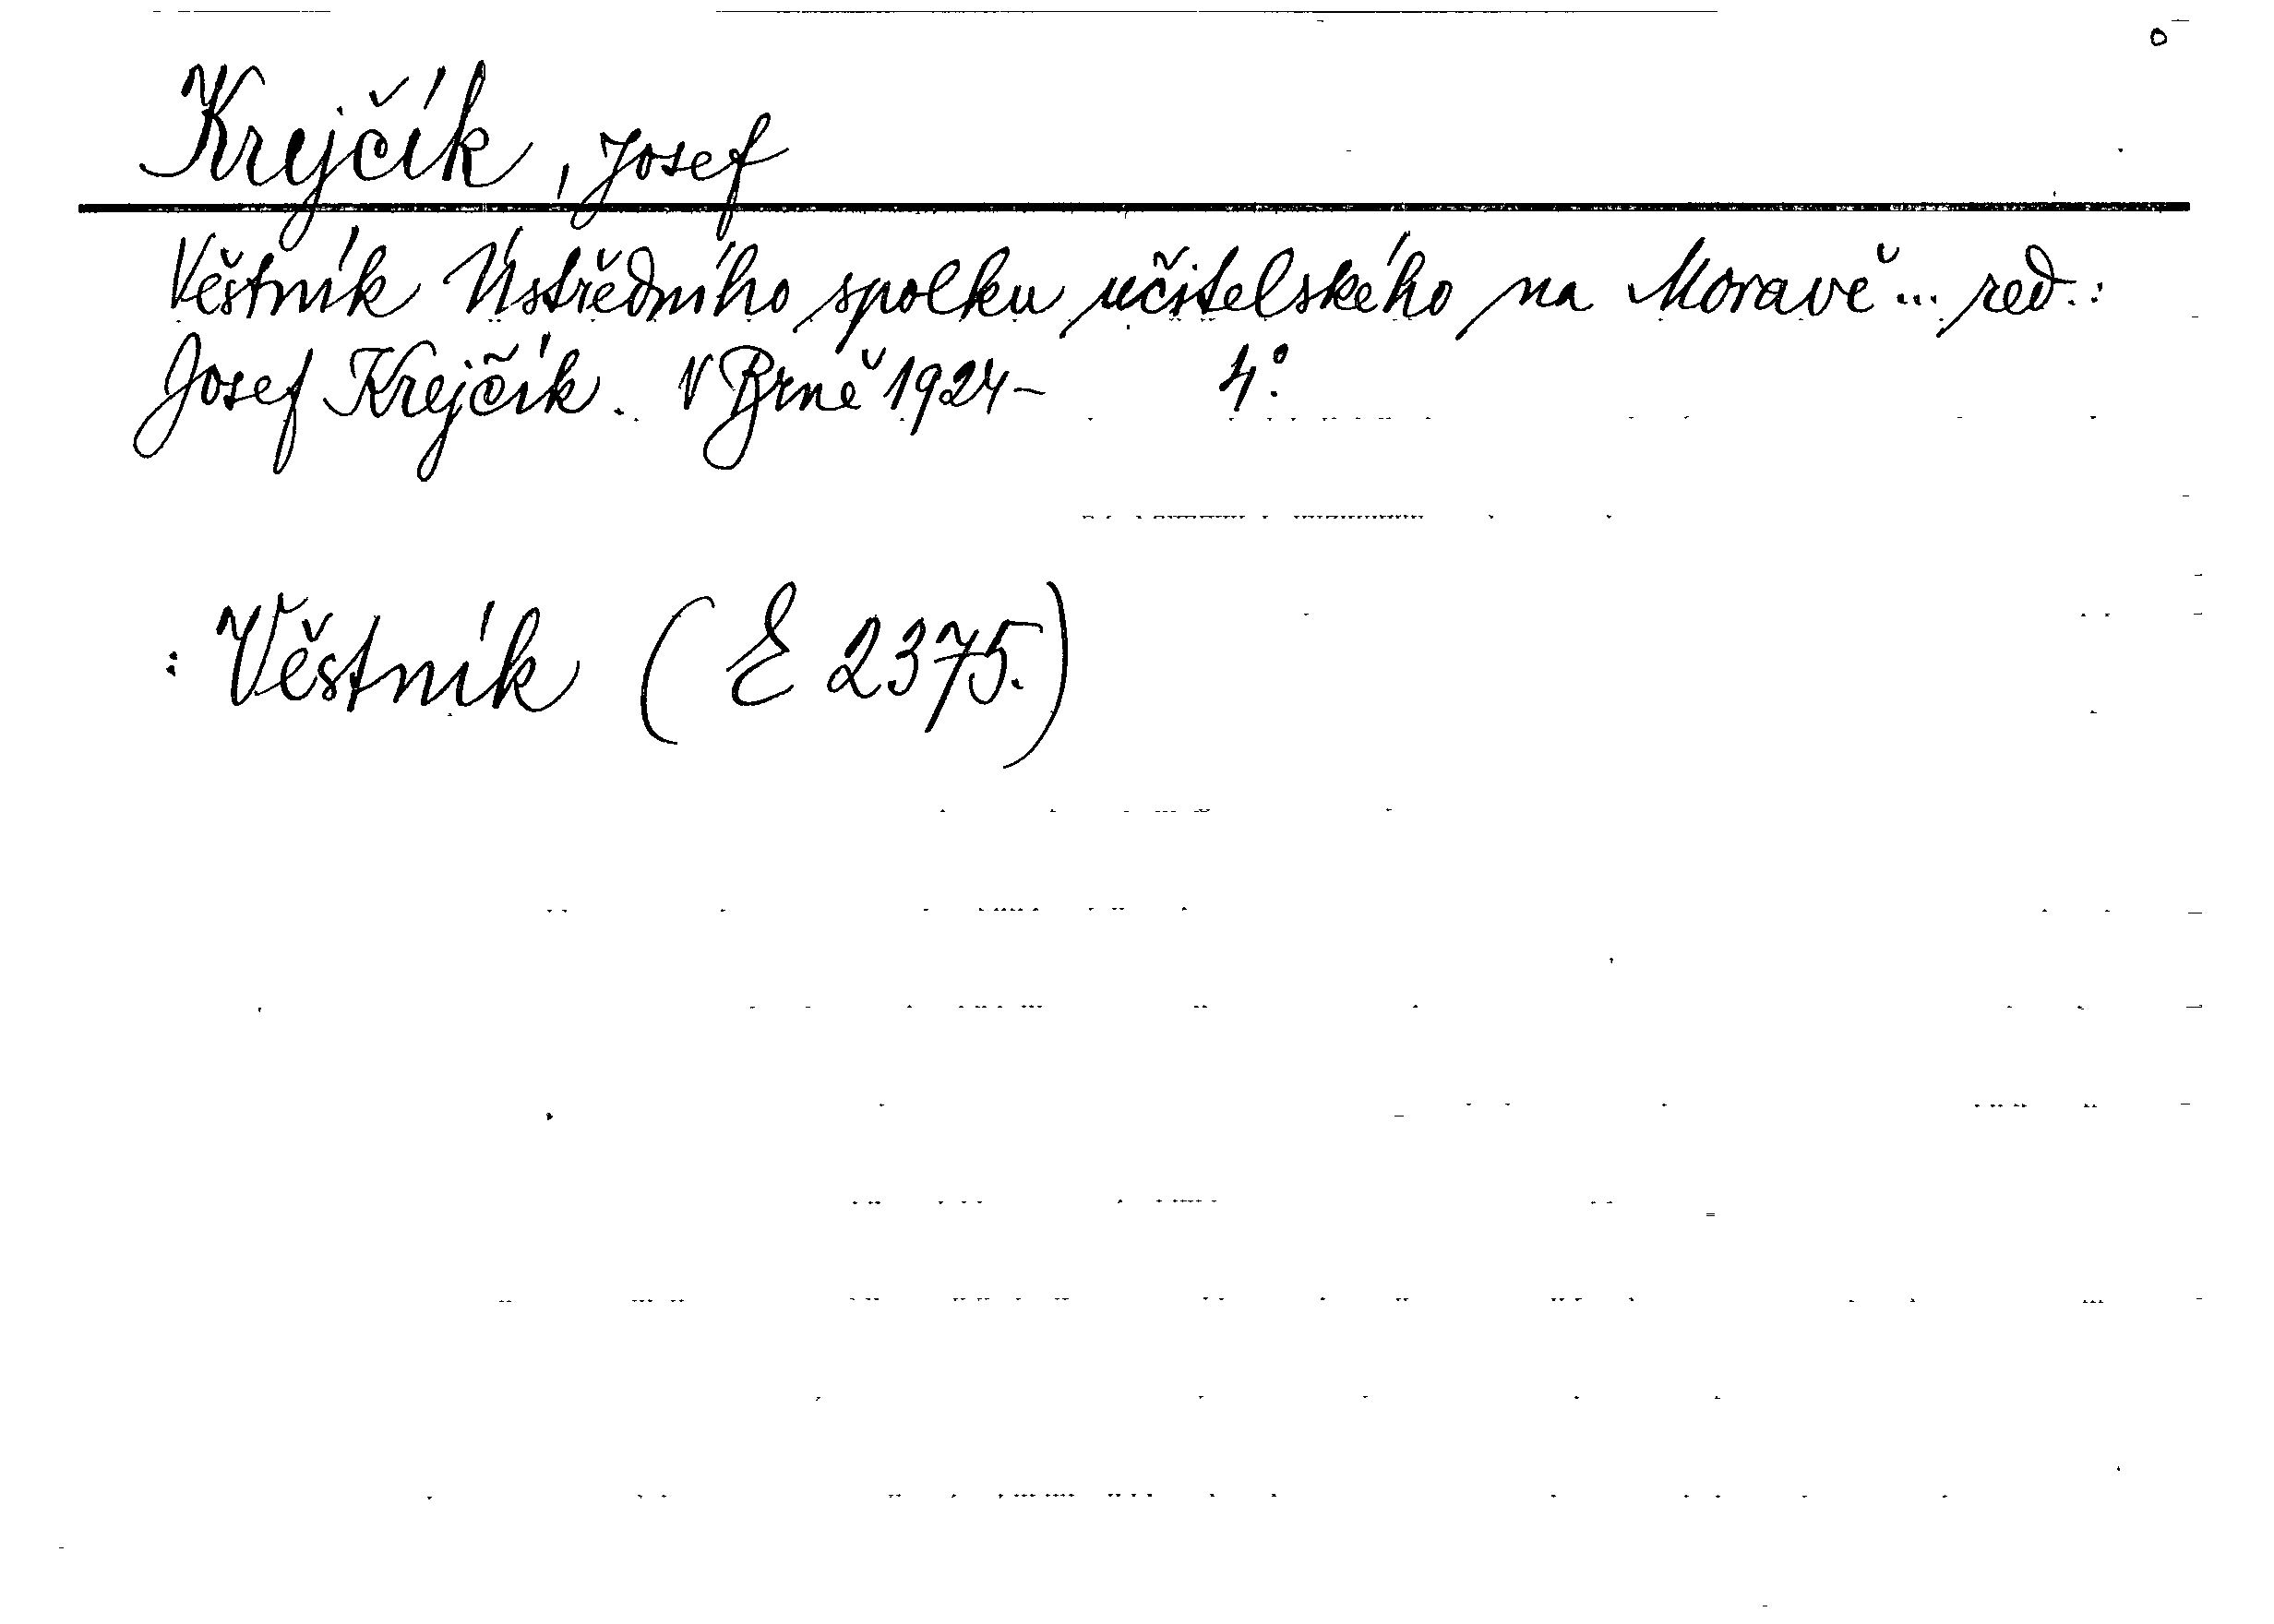 Krejčík, Josef
Věstník Ústředního spolku učitelského na Moravě... red.:
Josef Krejčík. V Brně 1924- 4°.
: Věstník (E 2375.)